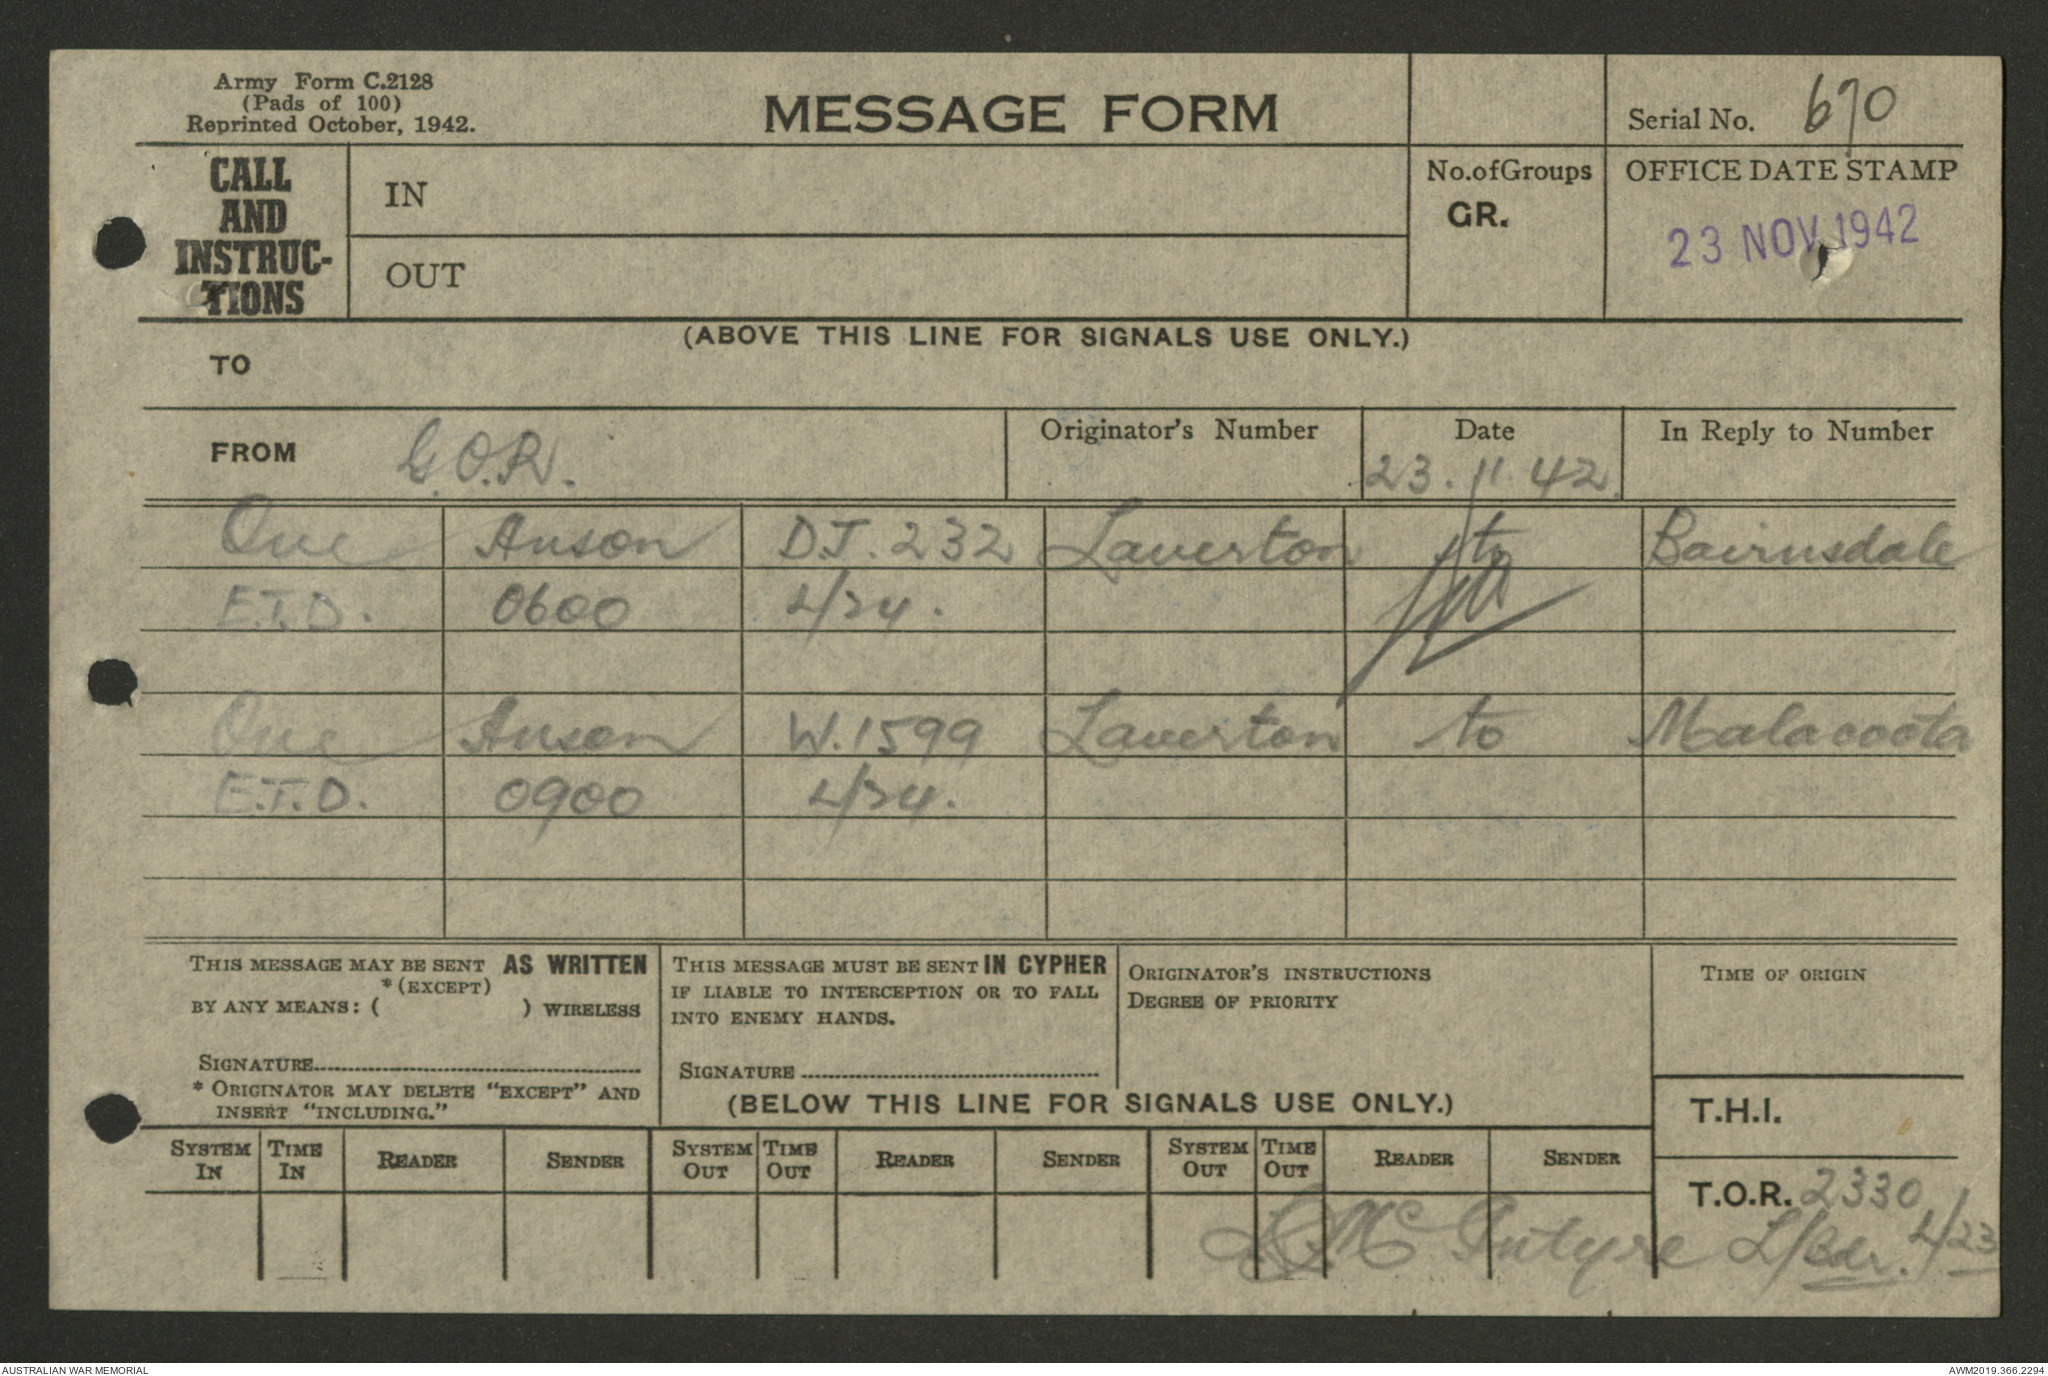 Army Form C.2128
(Pads of 100)
Reprinted October, 1942.
MESSAGE FORM
Serial No. 670
CALL AND INSTRUC-TIONS
IN
OUT
No. of Groups
GR.
OFFICE DATE STAMP
23 NOV 1942
(ABOVE THIS LINE FOR SIGNALS USE ONLY.)
TO
FROM G.O.R.
Originator's Number
Date 23.11.42.
In Reply to Number
One Anson D.J.232 Laverton to Bairnsdale
E.T.D. 0600 L/24.
One Anson W.1599 Laverton to Malacoota
E.T.D. 0900 L/24.
THIS MESSAGE MAY BE SENT AS WRITTEN
*(EXCEPT)
BY ANY MEANS: ( ) WIRELESS
SIGNATURE
* ORIGINATOR MAY DELETE "EXCEPT" AND
INSERT "INCLUDING."
THIS MESSAGE MUST BE SENT IN CYPHER
IF LIABLE TO INTERCEPTION OR TO FALL
INTO ENEMY HANDS.
SIGNATURE
ORIGINATOR'S INSTRUCTIONS
DEGREE OF PRIORITY
TIME OF ORIGIN
(BELOW THIS LINE FOR SIGNALS USE ONLY.)
T.H.I.
SYSTEM IN TIME IN READER SENDER SYSTEM OUT TIME OUT READER SENDER SYSTEM OUT TIME OUT READER SENDER
T.O.R. 2330
McIntyre L/Bdr. L/23
AUSTRALIAN WAR MEMORIAL
AWM2019.366.2294